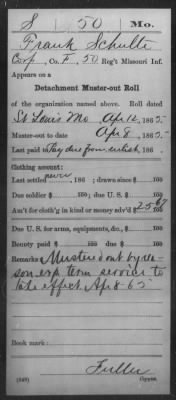 S 50 Mo.
Frank Schulte
Corp., Co. F, 50 Reg't Missouri Inf.
Appears on a
Detachment Muster-out Roll
of the organization named above. Roll dated
St Louis Mo Apr 12, 1865.
Muster-out to date Apr 8, 1865.
Last paid to Pay due from enlist, 186 .
Clothing account:
Last settled never, 186 ; drawn since $ 100
Due soldier $ 100; due U. S. $ 100
Am't for cloth'g in kind or money adv'd $ 25 67/100
Due U. S. for arms, equipments, &c., $ 100
Bounty paid $ 100; due $ 100
Remarks: Mustered out by rea-
son exp term service to
take effect Apr 8 65
Book mark:
Fuller
(840) Copyist.